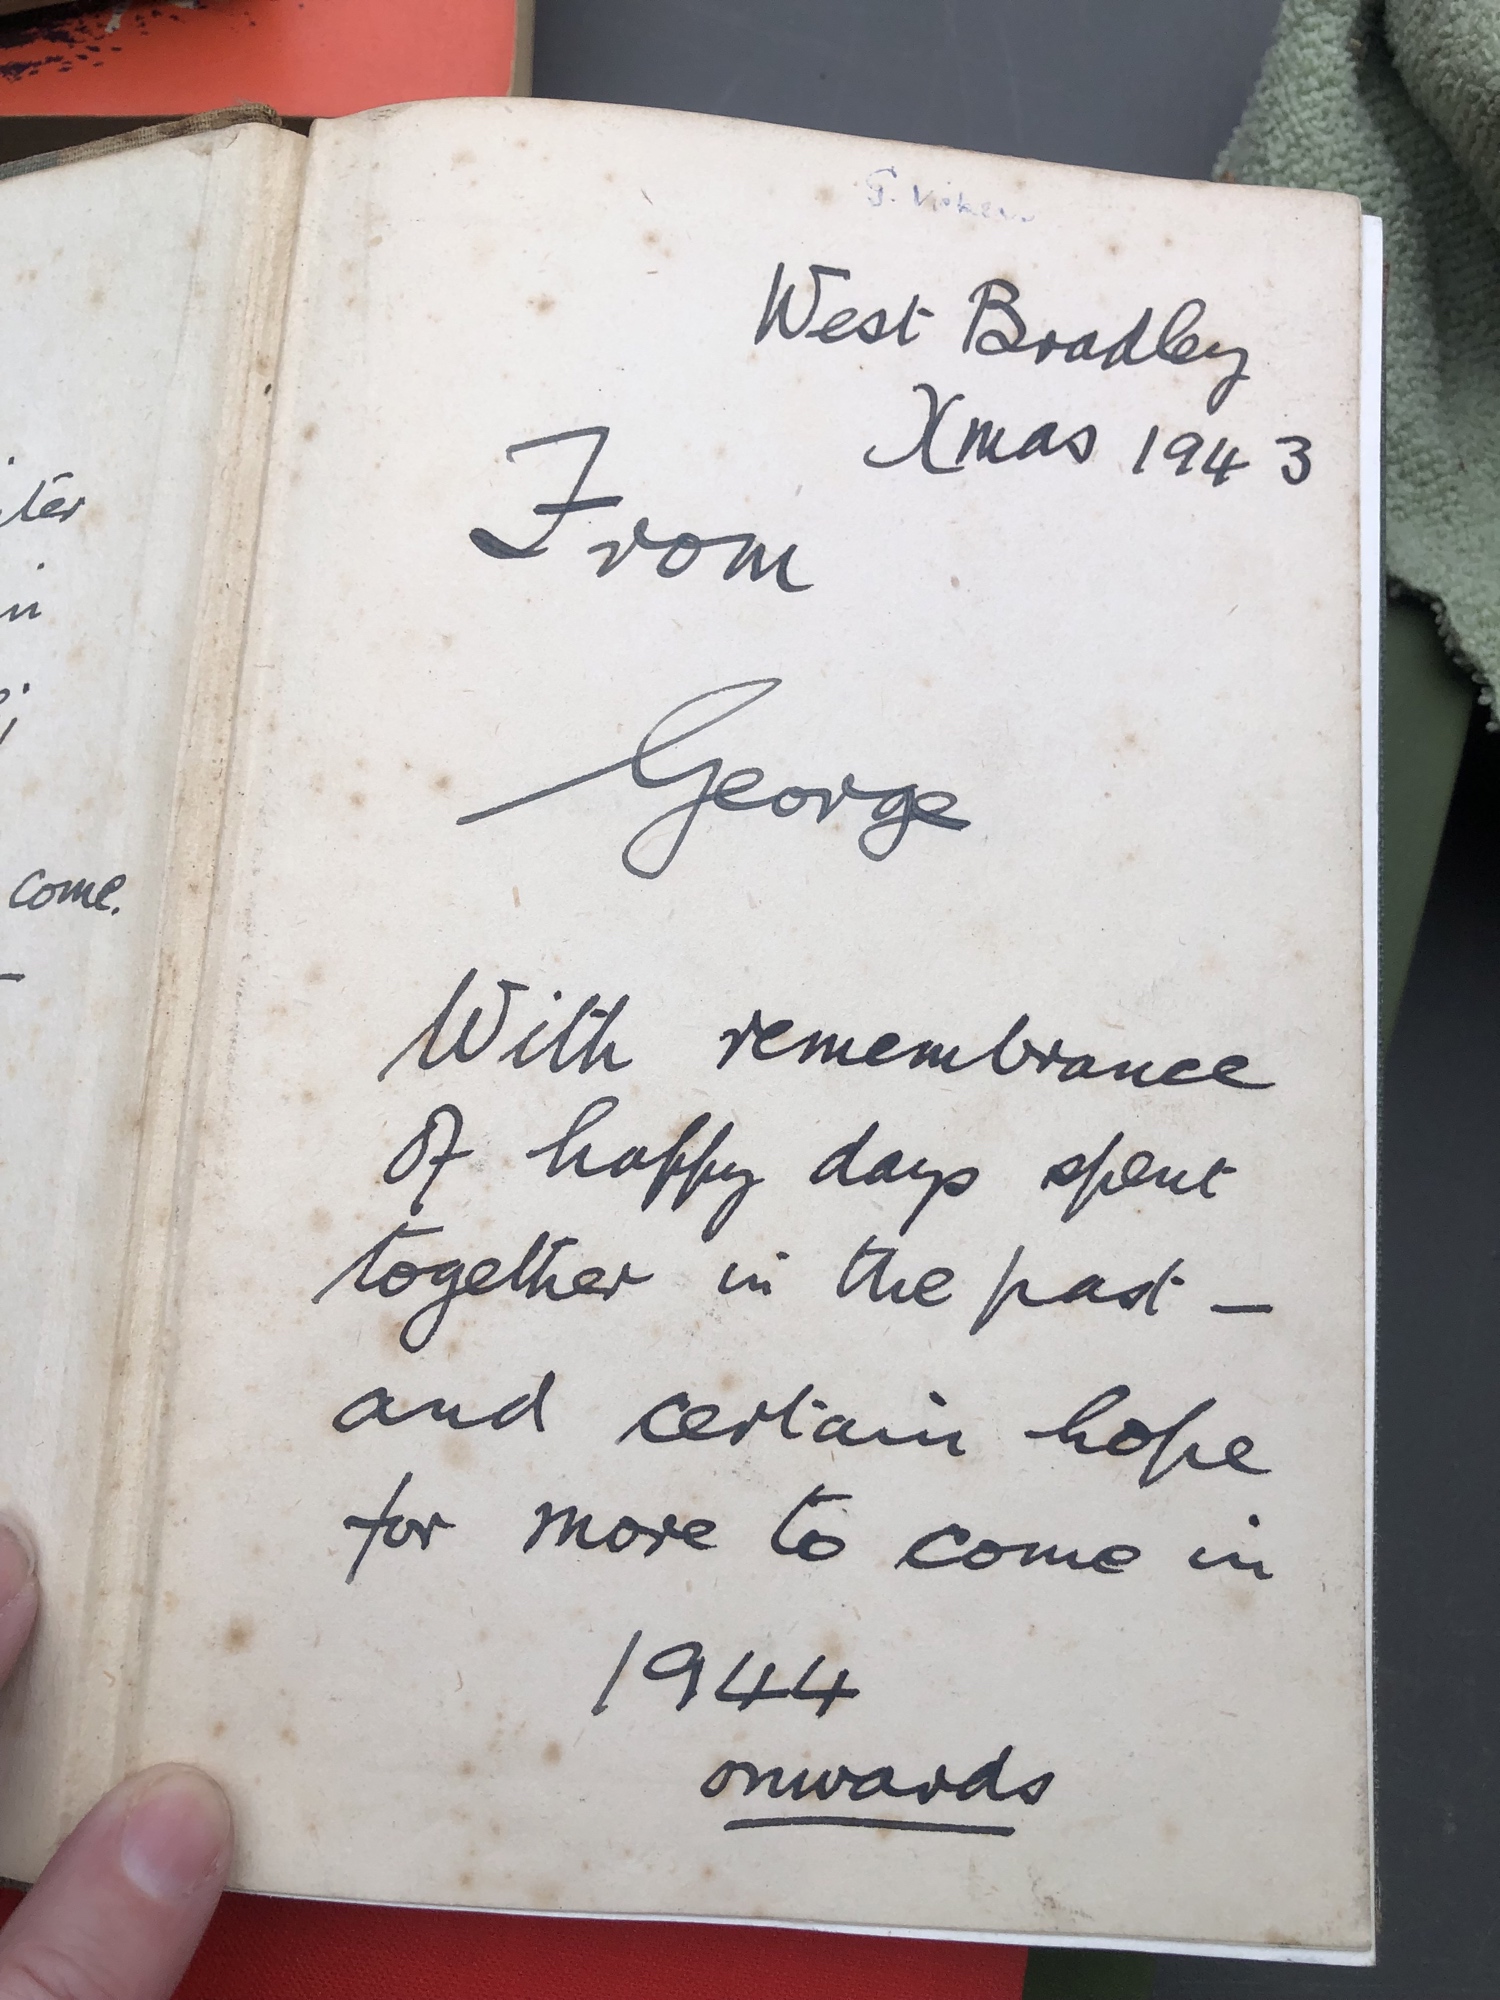 come.
West Bradley
Xmas 1943
From
George
With remembrance
of happy days spent
together in the past —
and certain hope
for more to come in
1944
onwards